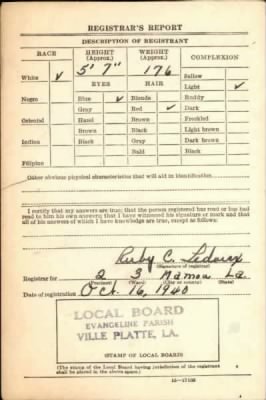 REGISTRAR'S REPORT
DESCRIPTION OF REGISTRANT
RACE HEIGHT (Approx.) WEIGHT (Approx.) COMPLEXION
5' 7" 176 Sallow
White ✓ EYES HAIR Light ✓
Negro Blue ✓ Blonde Ruddy
Gray Red ✓ Dark
Oriental Hazel Brown Freckled
Brown Black Light brown
Indian Black Gray Dark brown
Bald Black
Filipino
Other obvious physical characteristics that will aid in identification
I certify that my answers are true; that the person registered has read or has had
read to him his own answers; that I have witnessed his signature or mark and that
all of his answers of which I have knowledge are true, except as follows:
Ruby C. Ledoux
(Signature of registrar)
Registrar for 2 3 Mamou La.
(Precinct) (Ward) (City or county) (State)
Date of registration Oct. 16, 1940
LOCAL BOARD
EVANGELINE PARISH
VILLE PLATTE, LA.
(STAMP OF LOCAL BOARD)
(The stamp of the Local Board having jurisdiction of the registrant
shall be placed in the above space.)